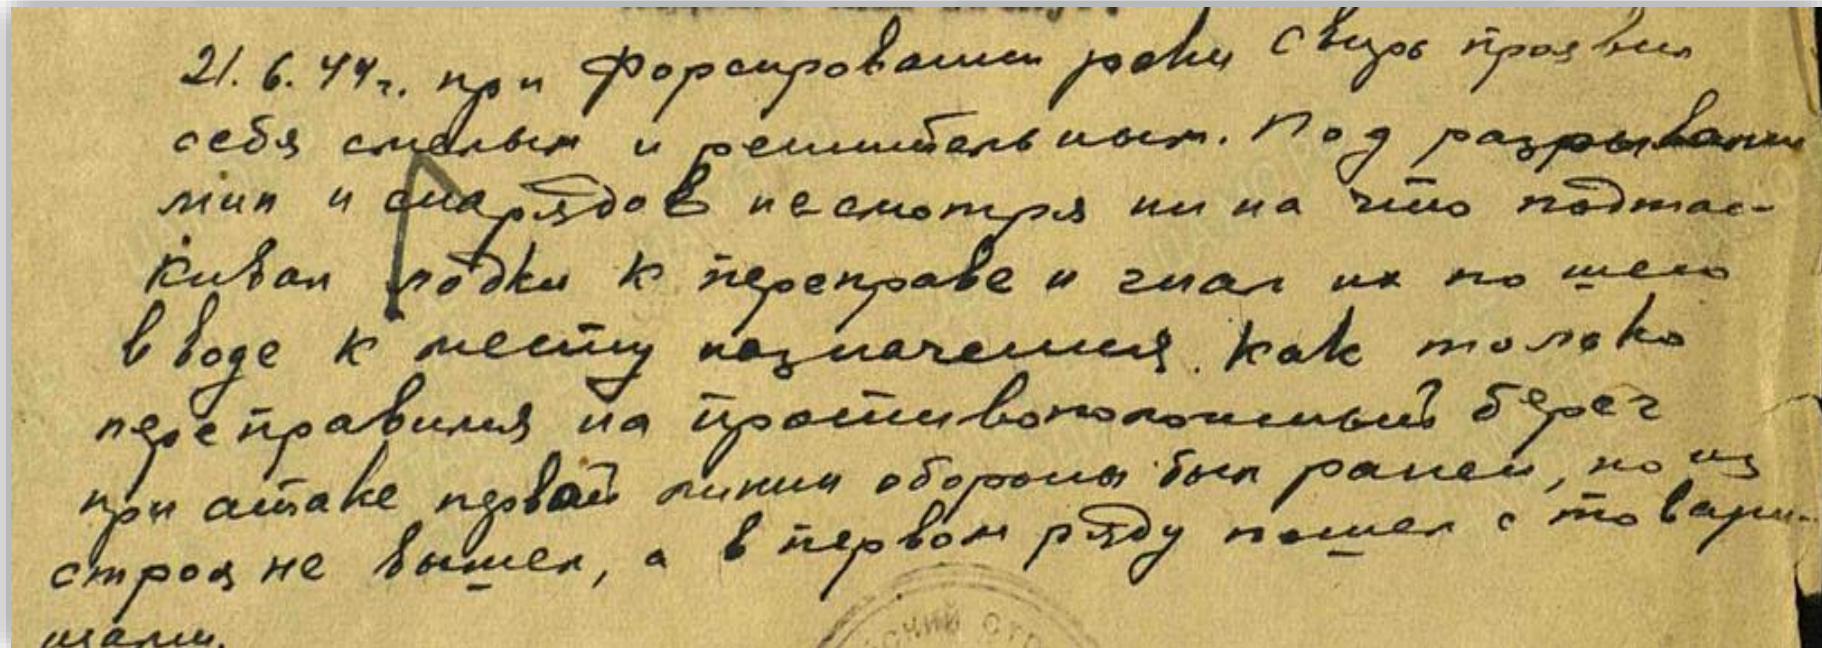 21.6.44г. при форсировании реки Свирь проявил
себя смелым и решительным. Под разрывами
мин и снарядов несмотря ни на что подтас-
кивал лодки к переправе и гнал их по шею
в воде к месту назначения. Как только
переправился на противоположный берег
при атаке первой линии обороны был ранен, но из
строя не вышел, а в первом ряду пошел с товари-
щами.
ский стр